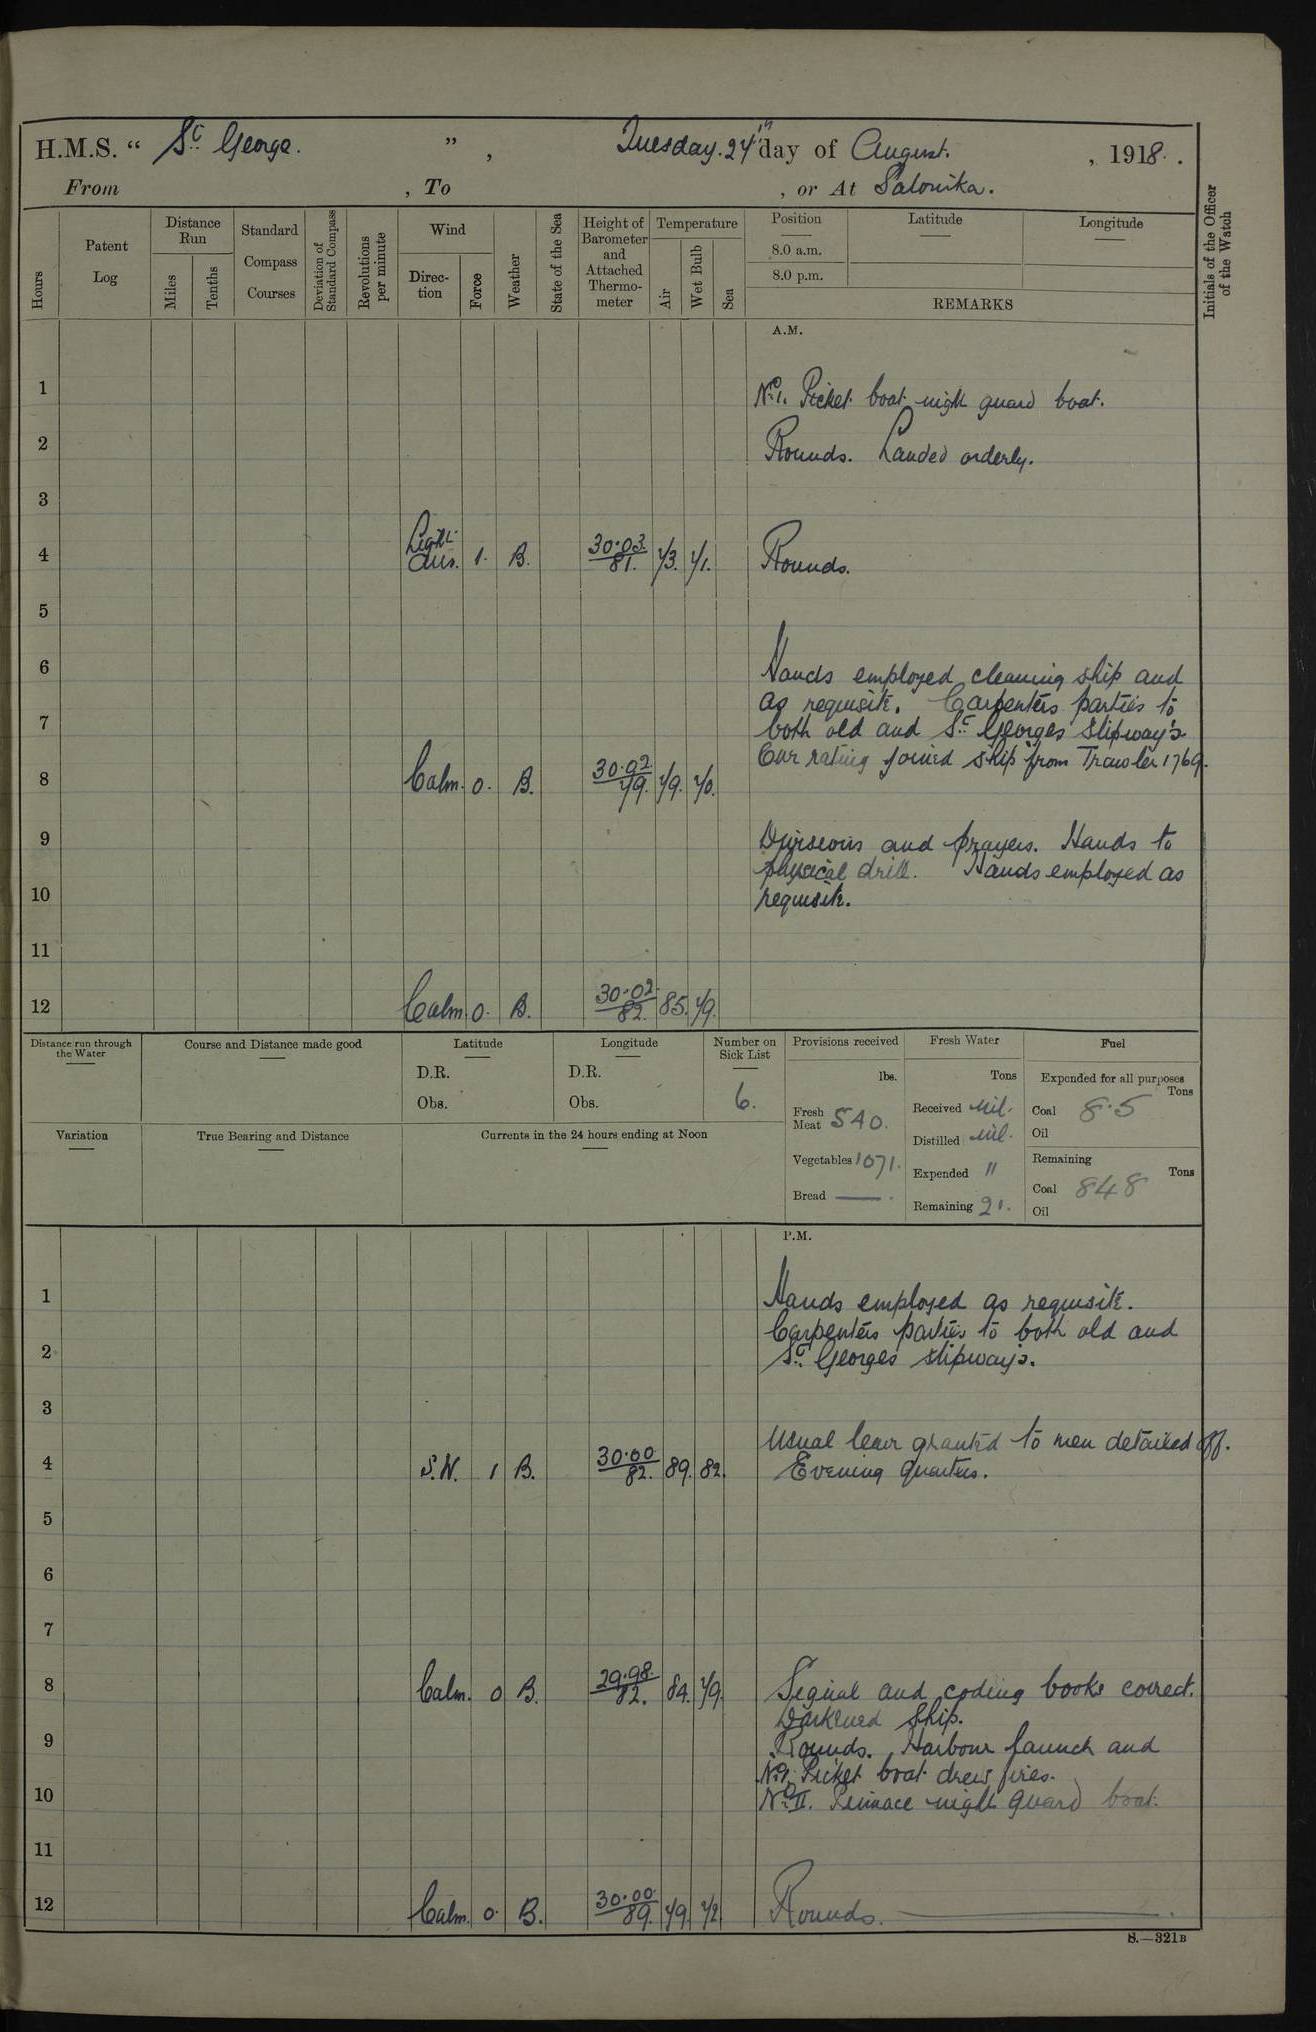 H.M.S. “ St. George. ” , Tuesday. 24th day of August. , 1918. .
From , To , or At Salonika.
Hours
Patent Log
Distance Run
Miles
Tenths
Standard Compass Courses
Deviation of Standard Compass
Revolutions per minute
Wind
Direc-tion
Force
Weather
State of the Sea
Height of Barometer and Attached Thermo-meter
Temperature
Air
Wet Bulb
Sea
Position
8.0 a.m.
8.0 p.m.
Latitude
Longitude
REMARKS
Initials of the Officer of the Watch
A.M.
1 No. 1. Picket boat night guard boat.
2 Rounds. Landed orderly.
3
4 Light Airs. 1. B. 30.03. 81. 73. 71. Rounds.
5
6 Hands employed cleaning ship and
as requisite. Carpenters parties to
7 both old and St. Georges slipway's.
One rating joined ship from Trawler 1769.
8 Calm. 0. B. 30.02 79. 79. 70.
9 Divisions and prayers. Hands to
physical drill. Hands employed as
10 requisite.
11
12 Calm. 0. B. 30.02. 82. 85. 79.
Distance run through the Water
Course and Distance made good
Latitude
D.R.
Obs.
Longitude
D.R.
Obs.
Number on Sick List
6.
Provisions received
lbs.
Fresh Meat 540.
Vegetables 1071.
Bread — .
Fresh Water
Tons
Received Nil.
Distilled Nil.
Expended "
Remaining 21.
Fuel
Expended for all purposes
Tons
Coal 8.5
Oil
Remaining
Tons
Coal 848
Oil
Variation
True Bearing and Distance
Currents in the 24 hours ending at Noon
P.M.
1 Hands employed as requisite.
Carpenters parties to both old and
2 St. Georges slipways.
3
Usual leave granted to men detailed off.
4 S.W. 1 B. 30.00 82. 89. 82. Evening quarters.
5
6
7
8 Calm. 0 B. 29.98. 82. 84. 79. Signal and coding books correct.
Darkened ship.
9 Rounds. Harbour launch and
No. 1. Picket boat drew fires.
10 No. II. Pinnace night guard boat.
11
12 Calm. 0. B. 30.00. 89. 79. 72 Rounds.
S.—321B